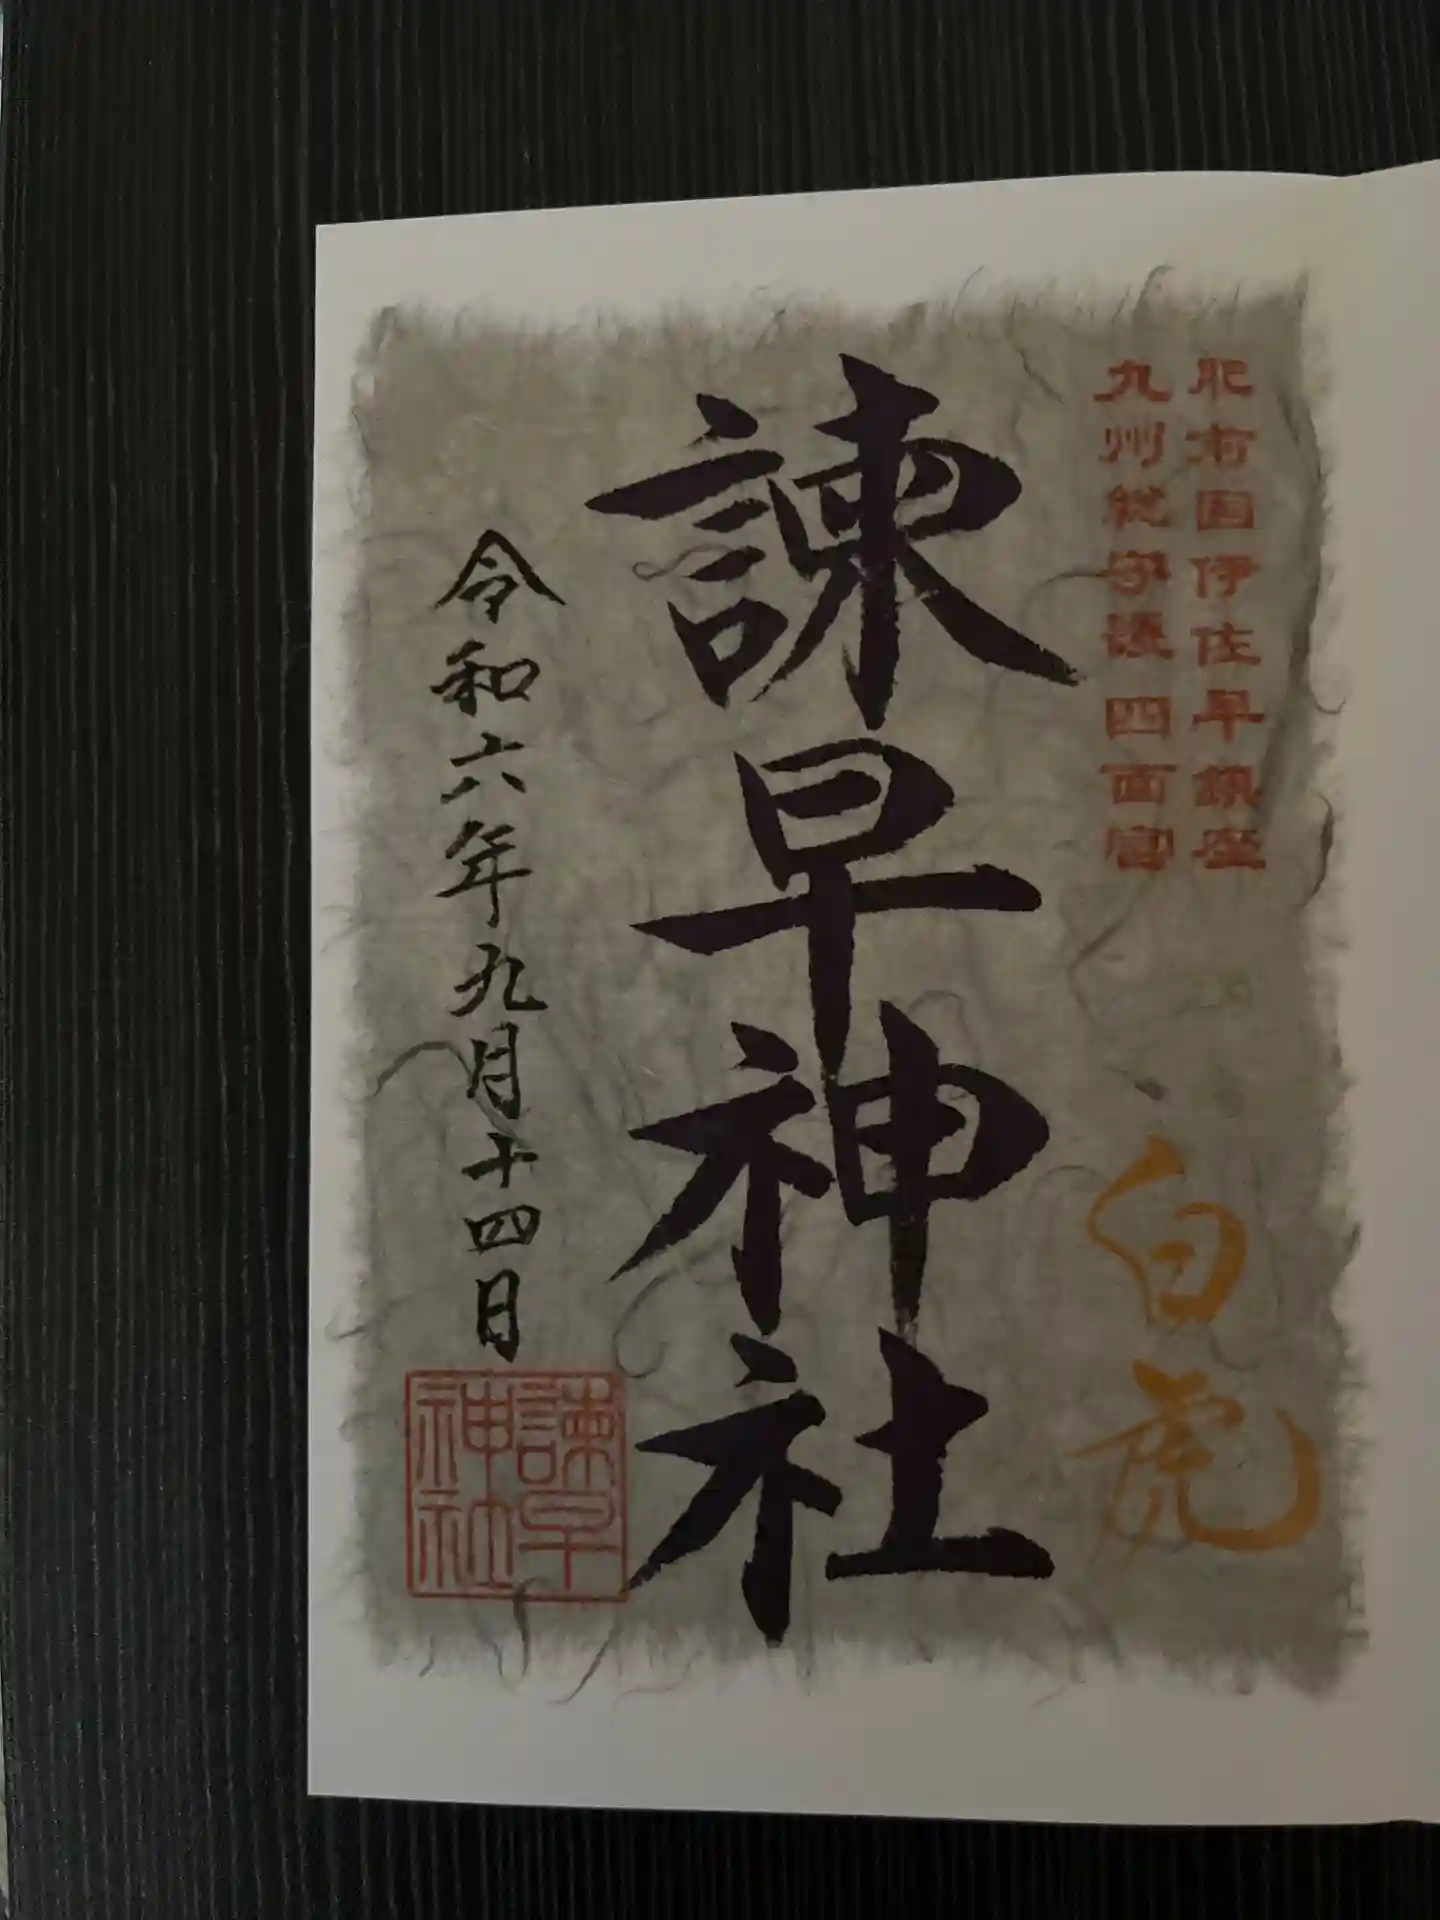 肥前国伊佐早鎮座
九州総守護四面宮
白虎
諫早神社
令和六年九月十四日
諫早
神社